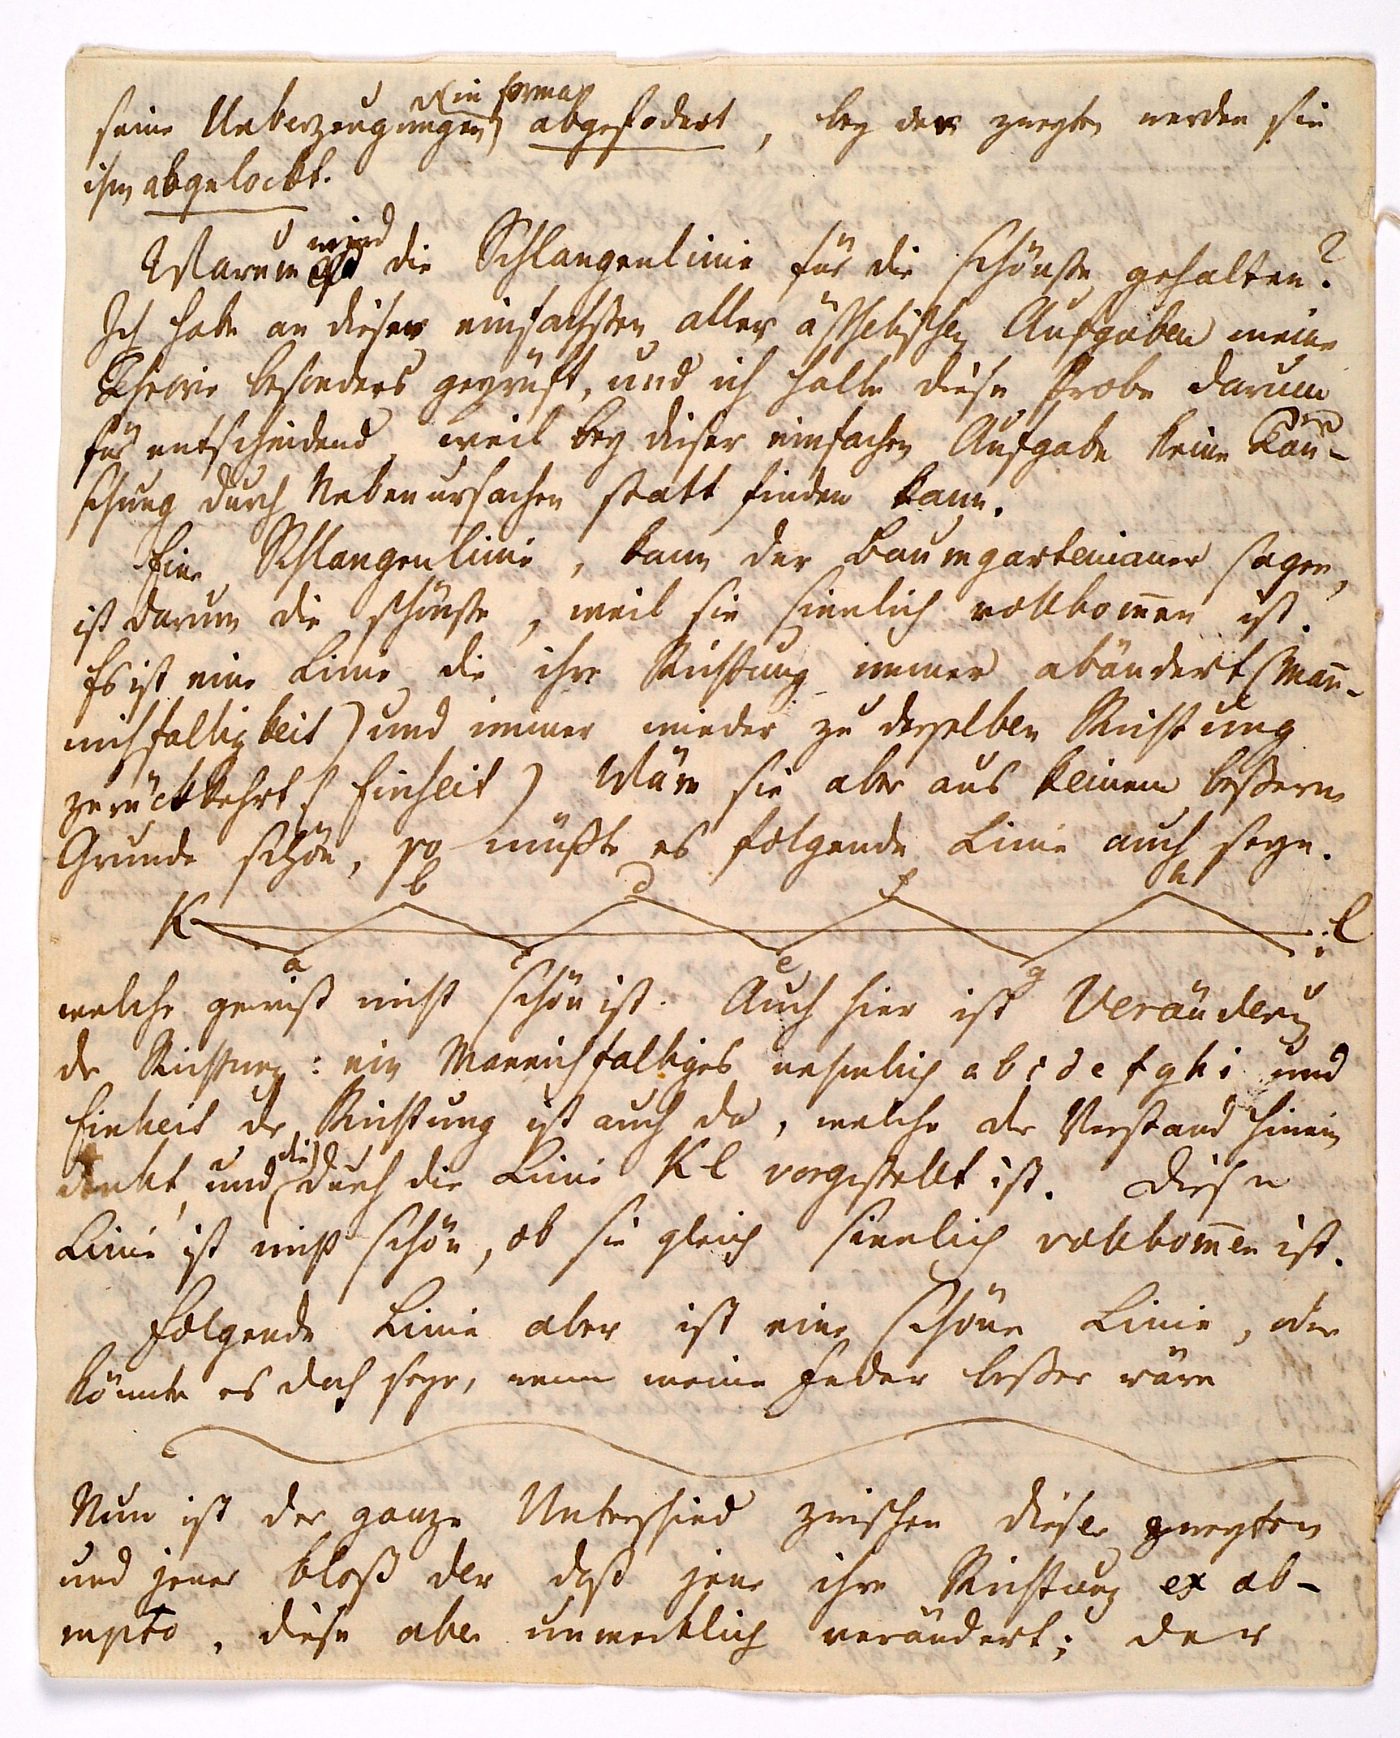 in forma
seine Ueberzeugungen abgefodert, bey der zweyten werden sie
ihm abgelockt.
Warum wird die Schlangenlinie für die schönste gehalten?
Ich habe an dieser einfachsten aller ästhetischen Aufgaben meine
Theorie besonders geprüft, und ich halte diese Probe darum
für entscheidend, weil bey dieser einfachen Aufgabe keine Täu-
schung durch Nebenursachen statt finden kann.
Eine Schlangenlinie, kann der Baumgartenianer sagen,
ist darum die schönste, weil sie sinnlich vollkom̄en ist.
Es ist eine Linie, die ihre Richtung immer abändert (Man̄-
nichfaltigkeit) und immer wieder zu derselben Richtung
zurückkehrt (Einheit) Wäre sie aber aus keinem beßern
Grunde schön, so müßte es folgende Linie auch seyn.
b d f h
K l
a c e g i
welche gewiß nicht schön ist. Auch hier ist Veränderung
der Richtung: ein Mannichfaltiges nehmlich a b c d e f g h i und
Einheit der Richtung ist auch da, welche der Verstand hinein
denkt, und die durch die Linie K l vorgestellt ist. Diese
Linie ist nicht schön, ob sie gleich sinnlich vollkom̄en ist.
Folgende Linie aber ist eine schöne Linie, oder
könnte es doch seyn, wenn meine Feder beßer wäre
Nun ist der ganze Unterschied zwischen dieser zweyten
und jener bloß der daß jene ihre Richtung ex ab-
rupto, diese aber unmerklich verändert; der